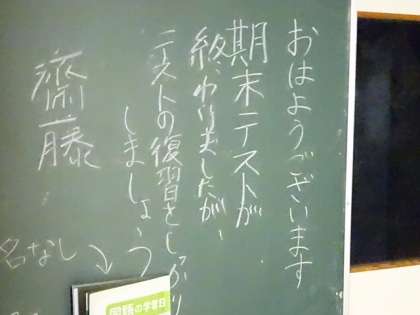 おはようございます
期末テストが
終わりましたが、
テストの復習をしっかり
しましょう
齋藤
名なし
国語の学習